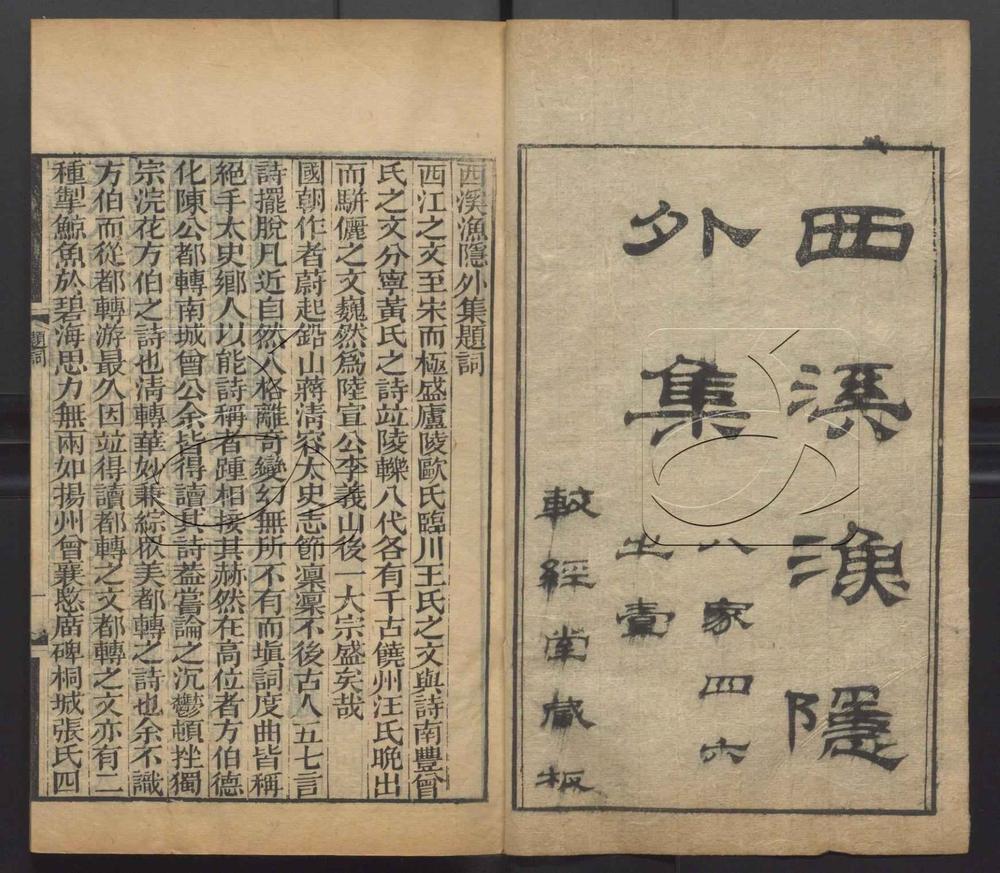 西溪漁隱
外集
八家四六
之壹
較經堂藏板
西溪漁隱外集題詞
西江之文至宋而極盛廬陵歐氏臨川王氏之文與詩南豐曾
氏之文分寧黃氏之詩竝陵轢八代各有千古饒州汪氏晚出
而駢儷之文巍然爲陸宣公李義山後一大宗盛矣哉
國朝作者蔚起鉛山蔣淸容太史志節凜凜不後古人五七言
詩擺脫凡近自然入格離奇變幻無所不有而塡詞度曲皆稱
絕手太史鄉人以能詩稱者踵相接其赫然在高位者方伯德
化陳公都轉南城曾公余皆得讀其詩葢嘗論之沉鬱頓挫獨
宗浣花方伯之詩也淸轉華妙兼綜衆美都轉之詩也余不識
方伯而從都轉游最久因竝得讀都轉之文都轉之文亦有二
種掣鯨魚於碧海思力無兩如揚州曾襄愍廟碑桐城張氏四
題詞
一